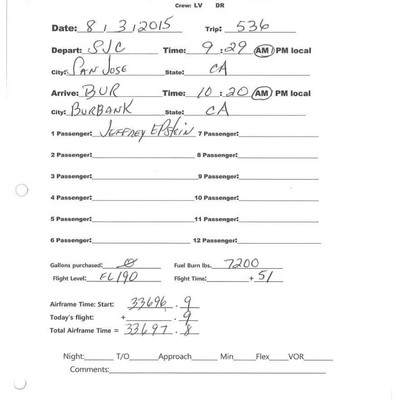 Crew: LV DR
Date: 8 / 3 / 2015 Trip: 536
Depart: SJC Time: 9 : 29 AM PM local
City: SAN JOSE State: CA
Arrive: BUR Time: 10 : 20 AM PM local
City: BURBANK State: CA
1 Passenger: JEFFREY EPSTEIN 7 Passenger:
2 Passenger: 8 Passenger:
3 Passenger: 9 Passenger:
4 Passenger: 10 Passenger:
5 Passenger: 11 Passenger:
6 Passenger: 12 Passenger:
Gallons purchased: 0 Fuel Burn lbs. 7200
Flight Level: FL190 Flight Time: + 51
Airframe Time: Start: 33696 . 9
Today's flight: + . 9
Total Airframe Time = 33697 . 8
Night: T/O Approach Min Flex VOR
Comments: